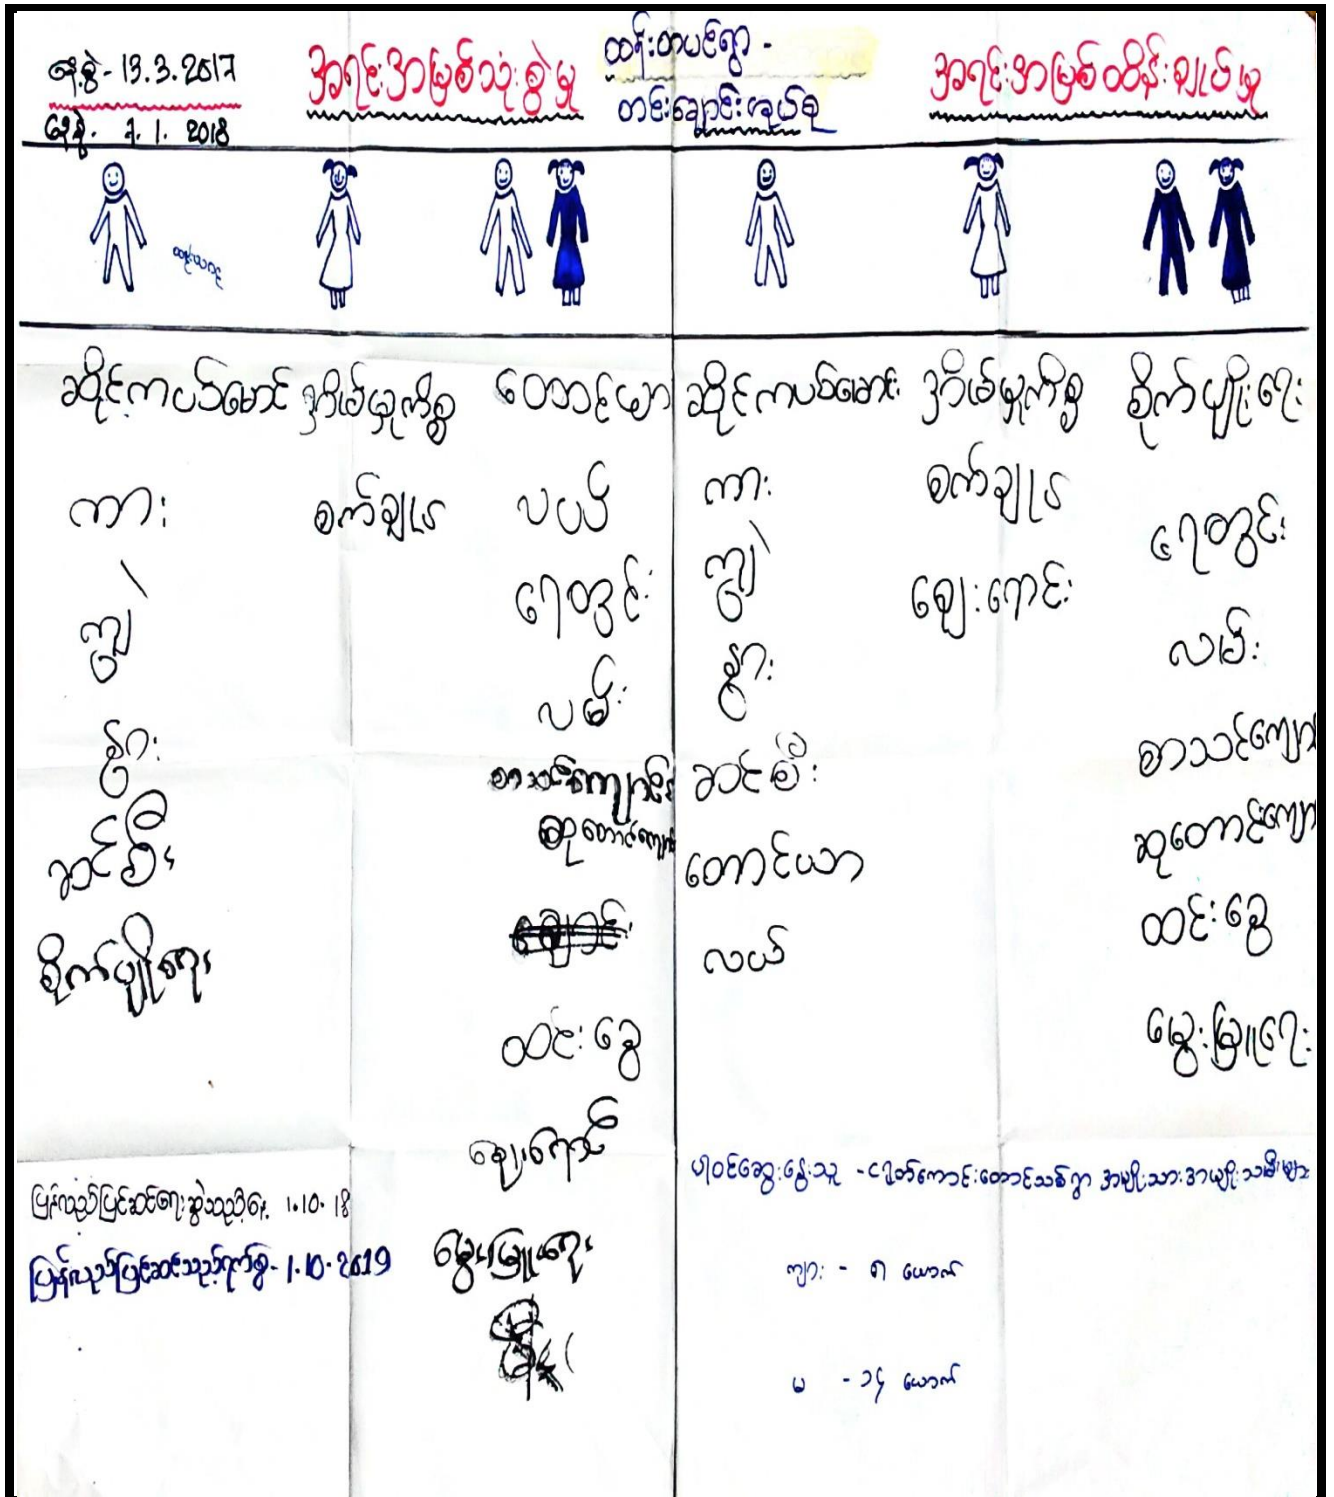 နေ့စွဲ - 13.3.2017
နေ့စွဲ - 7.1. 2018
အရင်းအမြစ်သုံးစွဲမှု
ထန်းတပင်ရွာ -
တင်းချောင်းအုပ်စု
အရင်းအမြစ်ထိန်းချုပ်မှု
ဆိုင်ကယ်မောင်း
ကား
ကျွဲ
နွား
ဆင်စီး
စိုက်ပျိုးရေး
အိမ်မှုကိစ္စ
စက်ချုပ်
ဝေဘင်ယာ
ယပ်
ရေတွင်း
လမ်း
စာသင်ကျောင်း
ဆုတောင်းကျောင်း
ထင်းခွေ
ဈေးရောင်း
မွေးမြူရေး
ဆိုင်ကယ်မောင်း
ကား
ကျွဲ
နွား
ဆင်စီး
တောင်ယာ
လယ်
အိမ်မှုကိစ္စ
စက်ချုပ်
ဈေးရောင်း
စိုက်ပျိုးရေး
ရေတွင်း
လမ်း
စာသင်ကျော
ဆုတောင်းကျော
ထင်းခွေ
မွေးမြူရေး
ပြန်လည်ပြင်ဆင်ရေးဆွဲသည့်နေ့ 1.10.18
ပြန်လည်ပြင်ဆင်သည့်ရက်စွဲ - 1.10.2019
ပါဝင်ဆွေးနွေးသူ - ငှက်ကောင်းတောင်သစ်ရွာ အမျိုးသား အမျိုးသမီးများ
ကျား - ၈ ယောက်
မ - ၁၄ ယောက်